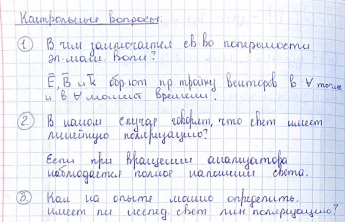 Контрольные вопросы.
① В чём заключается св-во поперечности
эл-магн. волн?
E, B и k обр-ют пр тройку векторов в ∀ точке
и в ∀ момент времени.
② В каком случае говорят, что свет имеет
линейную поляризацию?
Если при вращении анализатора
наблюдается полное гашение света.
③ Как на опыте можно определить,
имеет ли исслед. свет лин поляризацию?